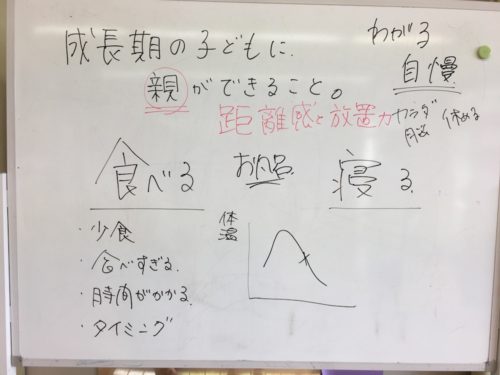 成長期の子どもに
親ができること。
わがる
自慢
距離感と放置力
カラダ 休める
脳
食べる
お風呂
寝る
・少食
・食べすぎる
・時間がかかる
・タイミング
体温